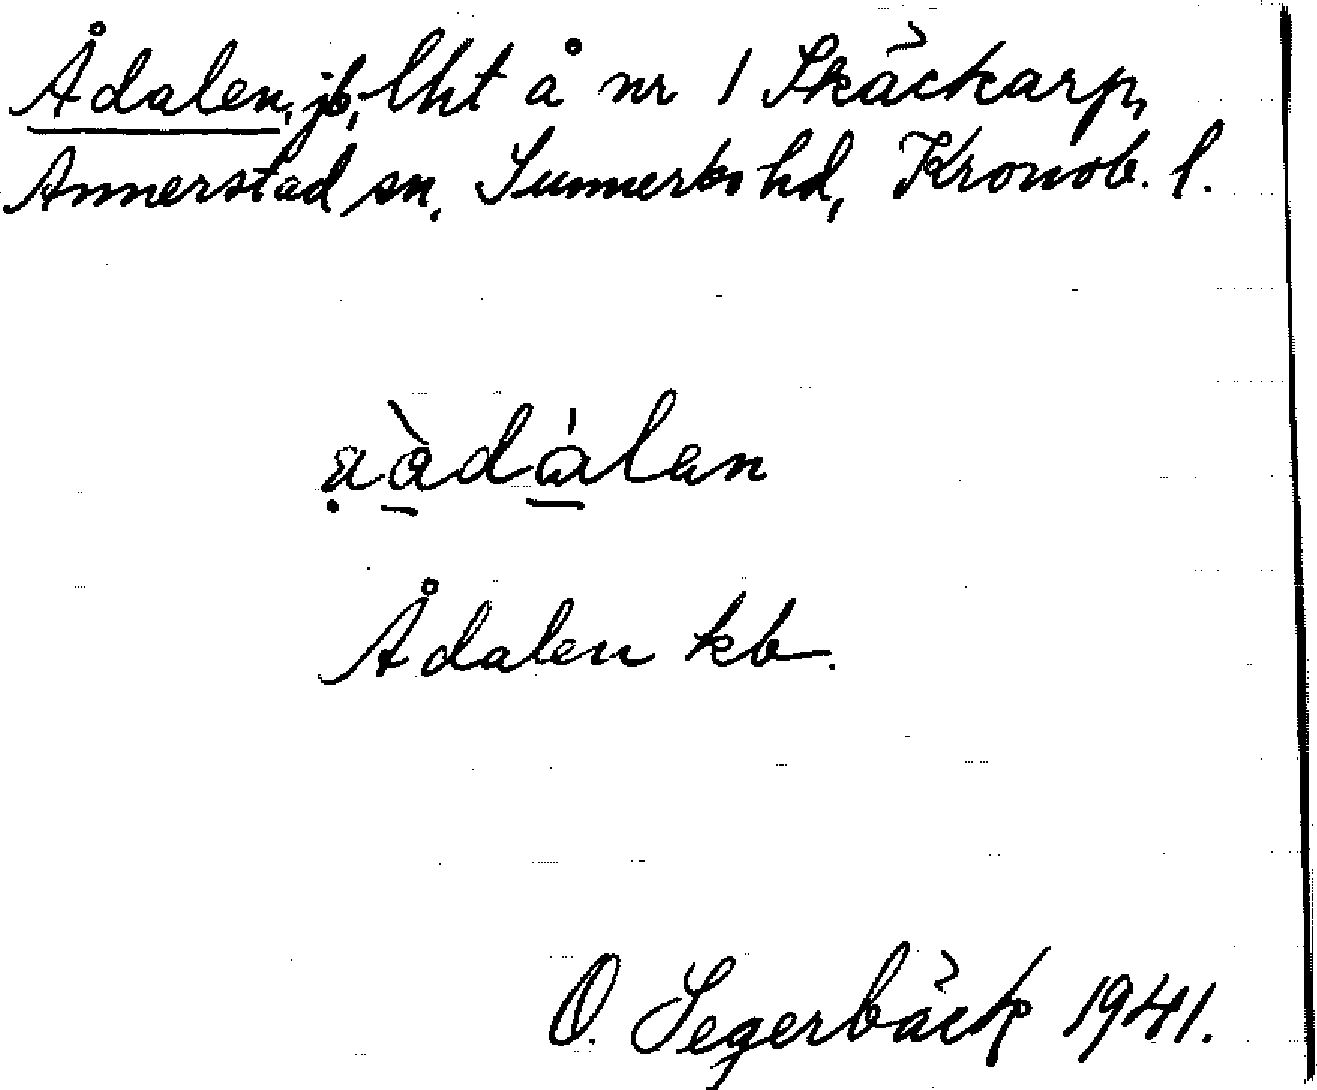 Ådalen, jb, lht å nr 1 Skäckarp,
Annerstad sn, Sunnerbo hd, Kronob. l.
Ådalen kb.
O. Segerbäck 1941.